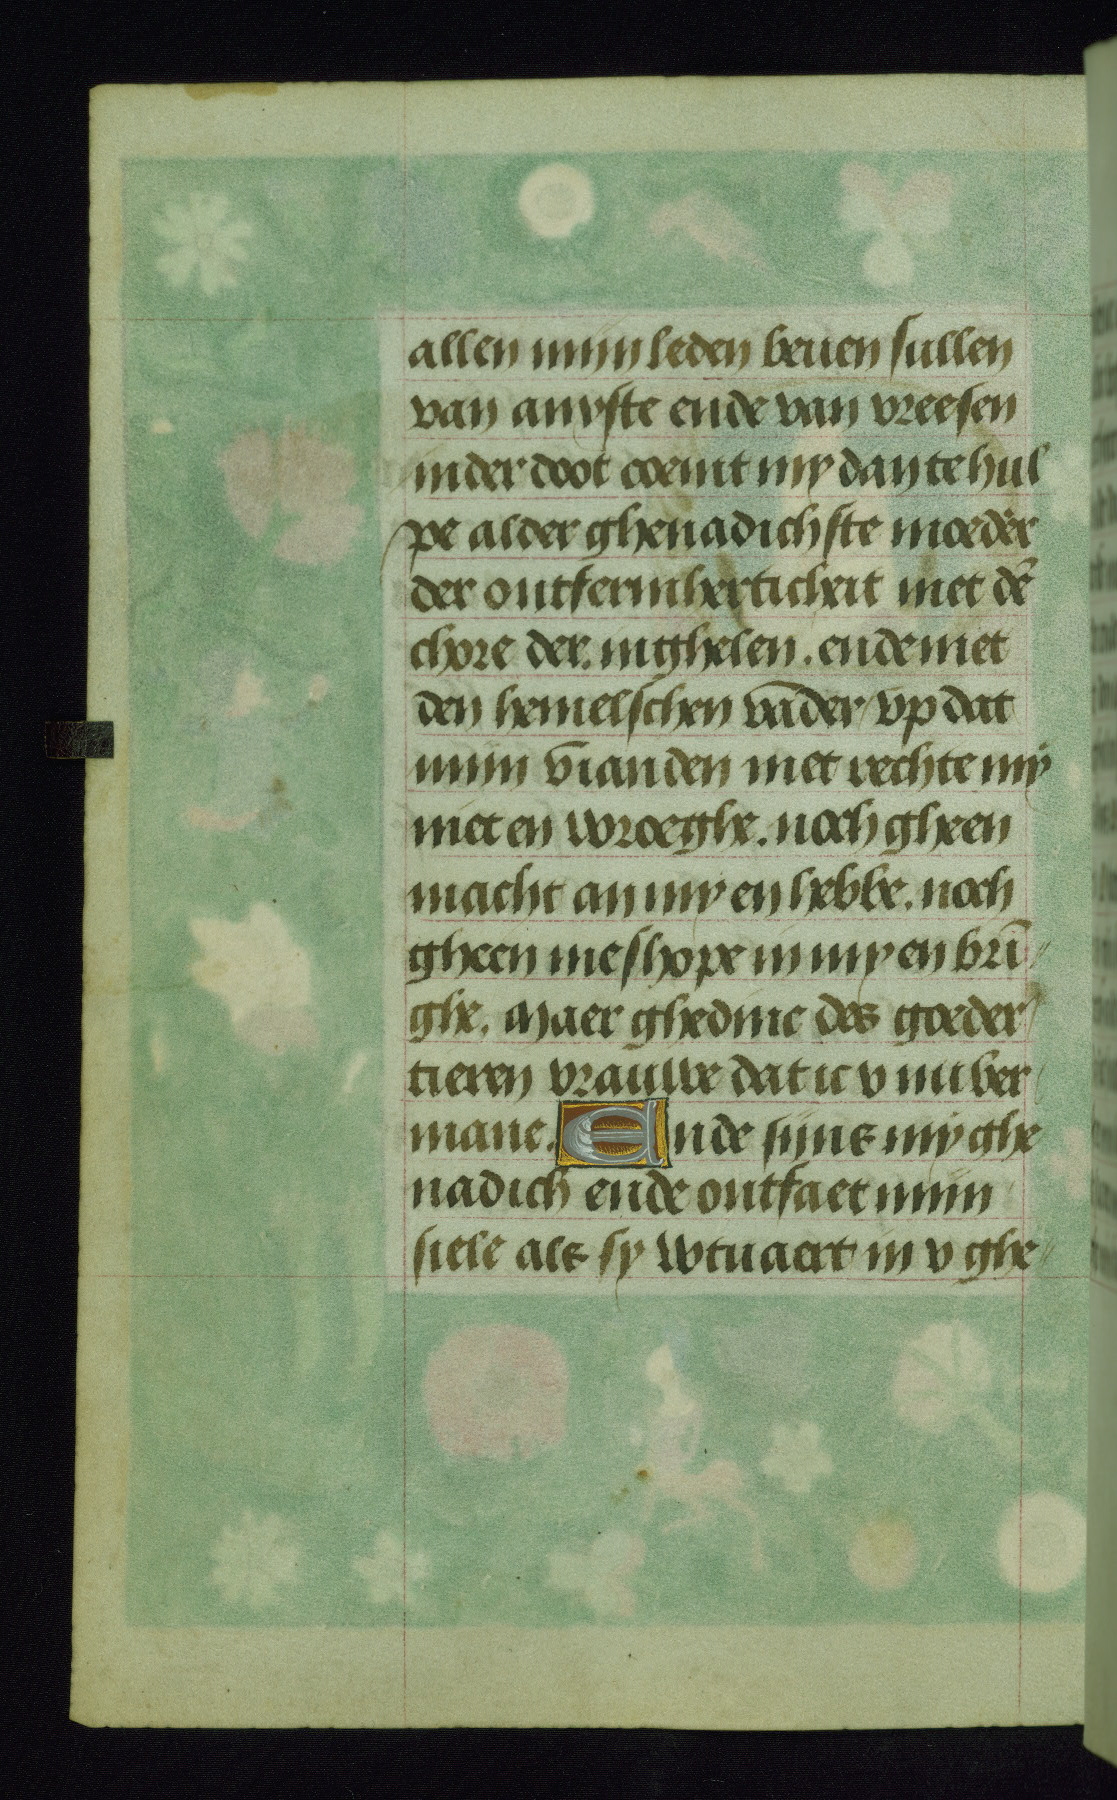 allen mijn leden beuen sullen
van anxste ende van vreesen
in der doot coemt my dan te hul
pe alder ghenadichste moeder
der ontfermherticheit met dē
chore der inghelen. ende met
den hemelschen vāder / vp dat
mijn viānden met rechte mÿ
niet en wroeghe. noch gheen
macht an my en hebbe. noch
gheen meshope in my en brī
ghe. Maer ghedinc des goeder
tieren vrauwe dat ic v nu ver
mane. Ende sijns mÿ ghe
nadich ende ontfaet mijn
siele als sy wtuaert in v ghe